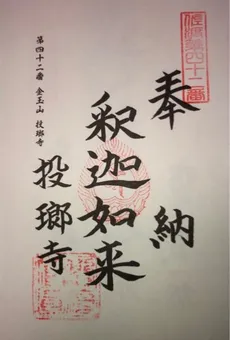 四十二番
奉納
釈迦如来
投瑯寺
第四十二番 金玉山 投瑯寺